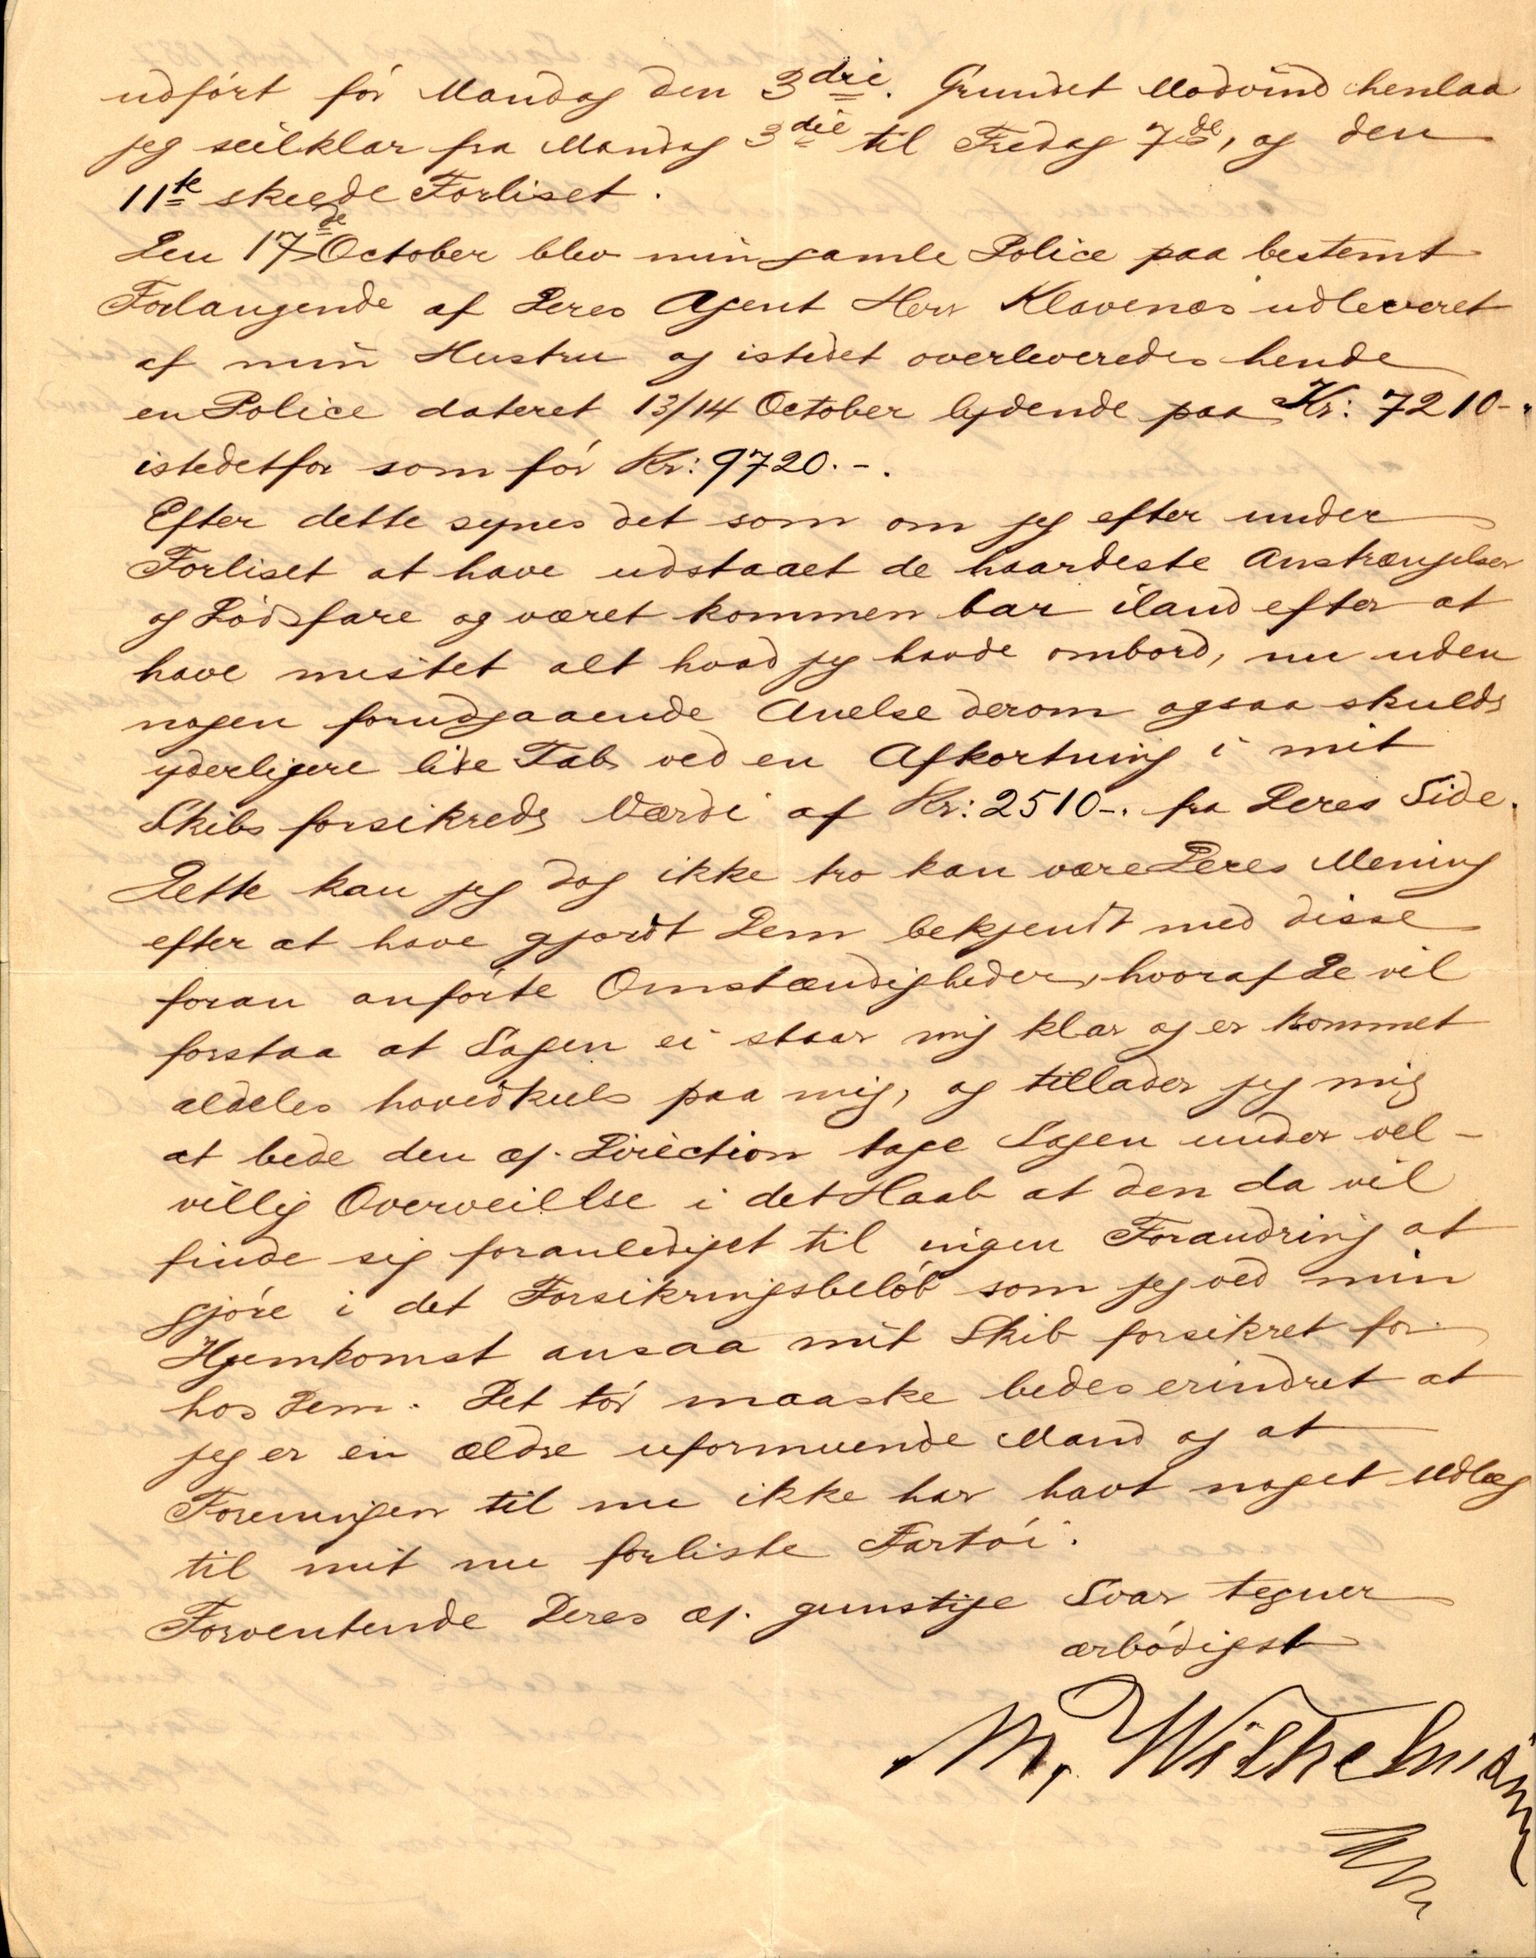 udført før Mandag den 3die. Grundet Modvind henlaa
jeg seilklar fra Mandag 3die til Fredag 7de, og den
11te skeede Forliset.
Den 17de October blev min gamle Police paa bestemt
Forlangende af Deres Agent Herr Klavenæs udleveret
af min Hustru og istedet overleveredes hende
en Police dateret 13/14 October lydende paa Kr: 7210-.
istedetfor som før Kr: 9720.-.
Efter dette synes det som om jeg efter under
Forliset at have udstaaet de haardeste Anstrængelser
og Dødsfare og været kommen bar iland efter at
have mistet alt hvad jeg havde ombord, nu uden
nogen forudgaaende Anelse derom ogsaa skulde
yderligere lide Tab ved en Afkortning i mit
Skibs forsikrede Værdi af Kr: 2510-. fra Deres Side.
Dette kan jeg dog ikke tro kan være Deres Mening
efter at have gjordt Dem bekjendt med disse
foran anførte Omstændigheder, hvoraf De vil
forstaa at Sagen ei staar mig klar og er kommet
aldeles hovedkuls paa mig, og tillader jeg mig
at bede den æ. Direction tage Sagen under vel-
villig Overveillse i det Haab at den da vil
finde sig foranlediget til ingen Forandring at
gjøre i det Forsikringsbeløb som jeg ved min
Hjemkomst ansaa mit Skib forsikret for
hos Dem. Det tør maaske bedes erindret at
jeg er en ældre uformuende Mand og at
Foreningen til nu ikke har havt noget Udlæg
til mit nu forliste Fartøi.
Forventende Deres æ. gunstige Svar tegner
ærbødigst
M. Wilhelmsen